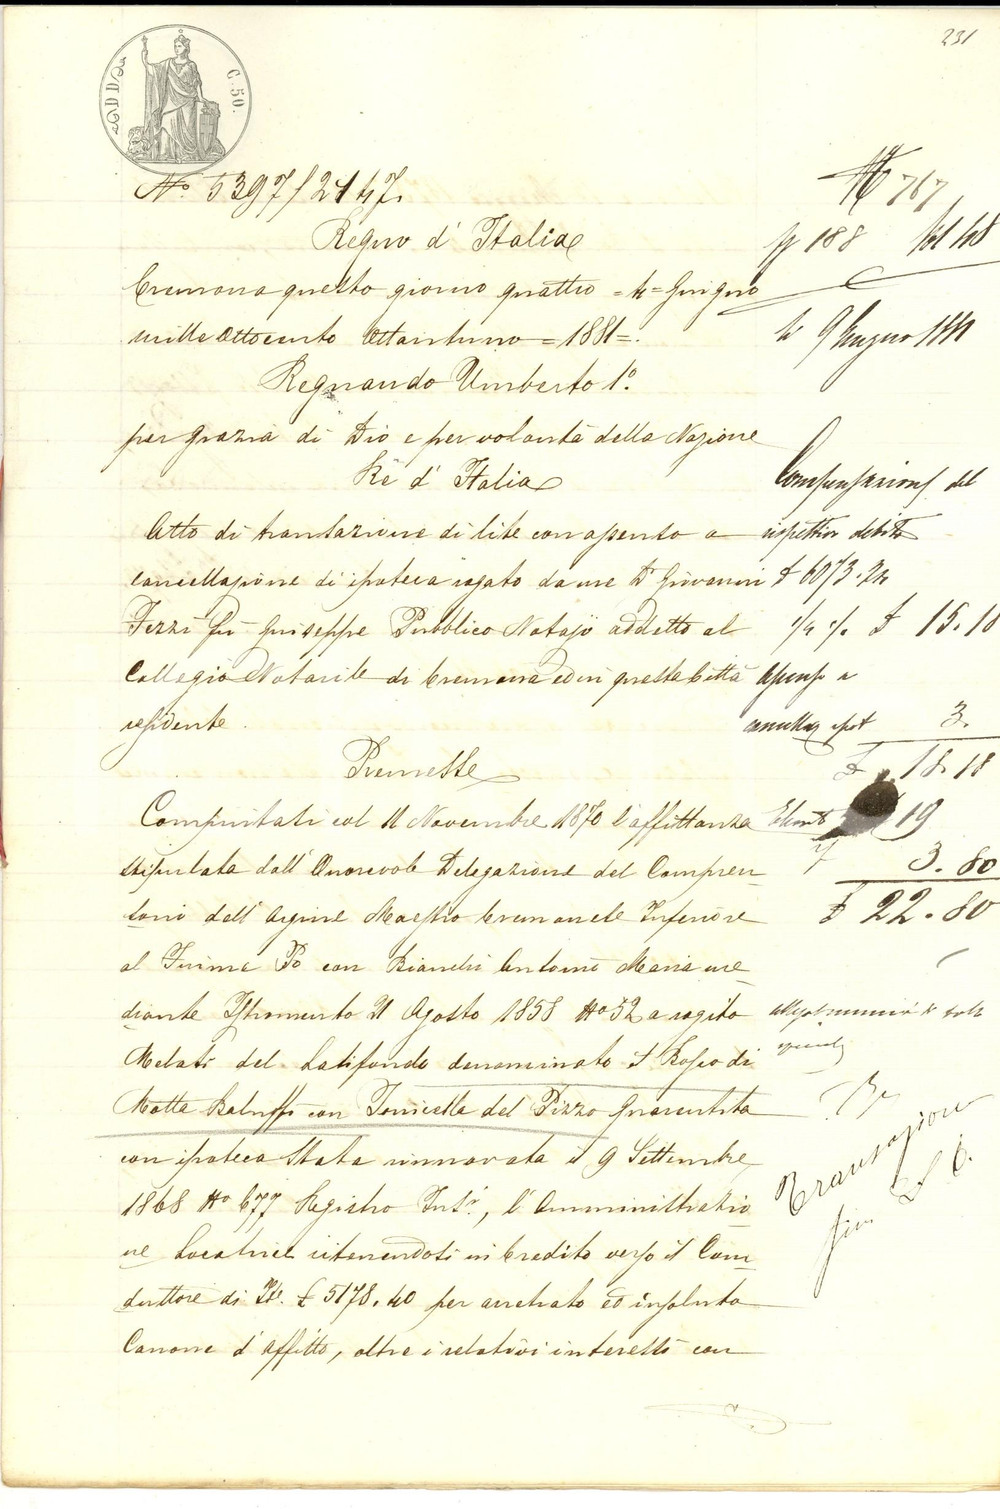 231
C. 50.
No. 5397/2147.
Regno d'Italia
Cremona questo giorno quattro = 4 = Giugno
mille Ottocento Ottantuno = 1881 =.
Regnando Umberto 1º.
per grazia di Dio e per volontà della Nazione
Rè d'Italia
Atto di transazione di lite con assenso a
cancellazione di ipoteca rogato da me Dr. Giovanni
Fezzi fu Giuseppe Pubblico Notajo addetto al
Collegio Notarile di Cremona ed in questa Città
residente.
Premesse
Compiutasi col 11 Novembre 1870 l'affittanza
stipulata dall'Onorevole Delegazione del Compren-
sorio dell'Argine Maestro Cremonese Inferiore
al Fiume Po con Bianchi Antonio Maria me-
diante Istromento 21 Agosto 1858 No 52 a rogito
Melati del Latifondo denominato il Bosco di
Motta Baluffi con Tornicella del Pizzo guarentita
con ipoteca stata rinnovata il 9 Settembre
1868 No 677 Registro Insr., l'Amministrazio
ne Locatrice ritenendosi in Credito verso il Con-
duttore di It. £ 5178.40 per arretrato ed insoluto
Canone d'affitto, oltre i relativi interessi con
767
188 Vol 48
9 Giugno 1881
Compensazione del
rispettivo debito
£ 6073.24
1/4 % £ 15.18
Assenso a
annullaz ipot 3.
£ 18.18
19
3.80
£ 22.80
Transazione